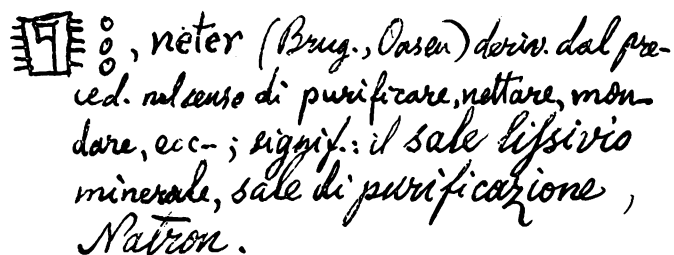 , neter (Brug., Oasen) deriv. dal pre-
ced. nel senso di purificare, nettare, mon-
dare, ecc-; signif.: il sale lissivio
minerale, sale di purificazione,
Natron.